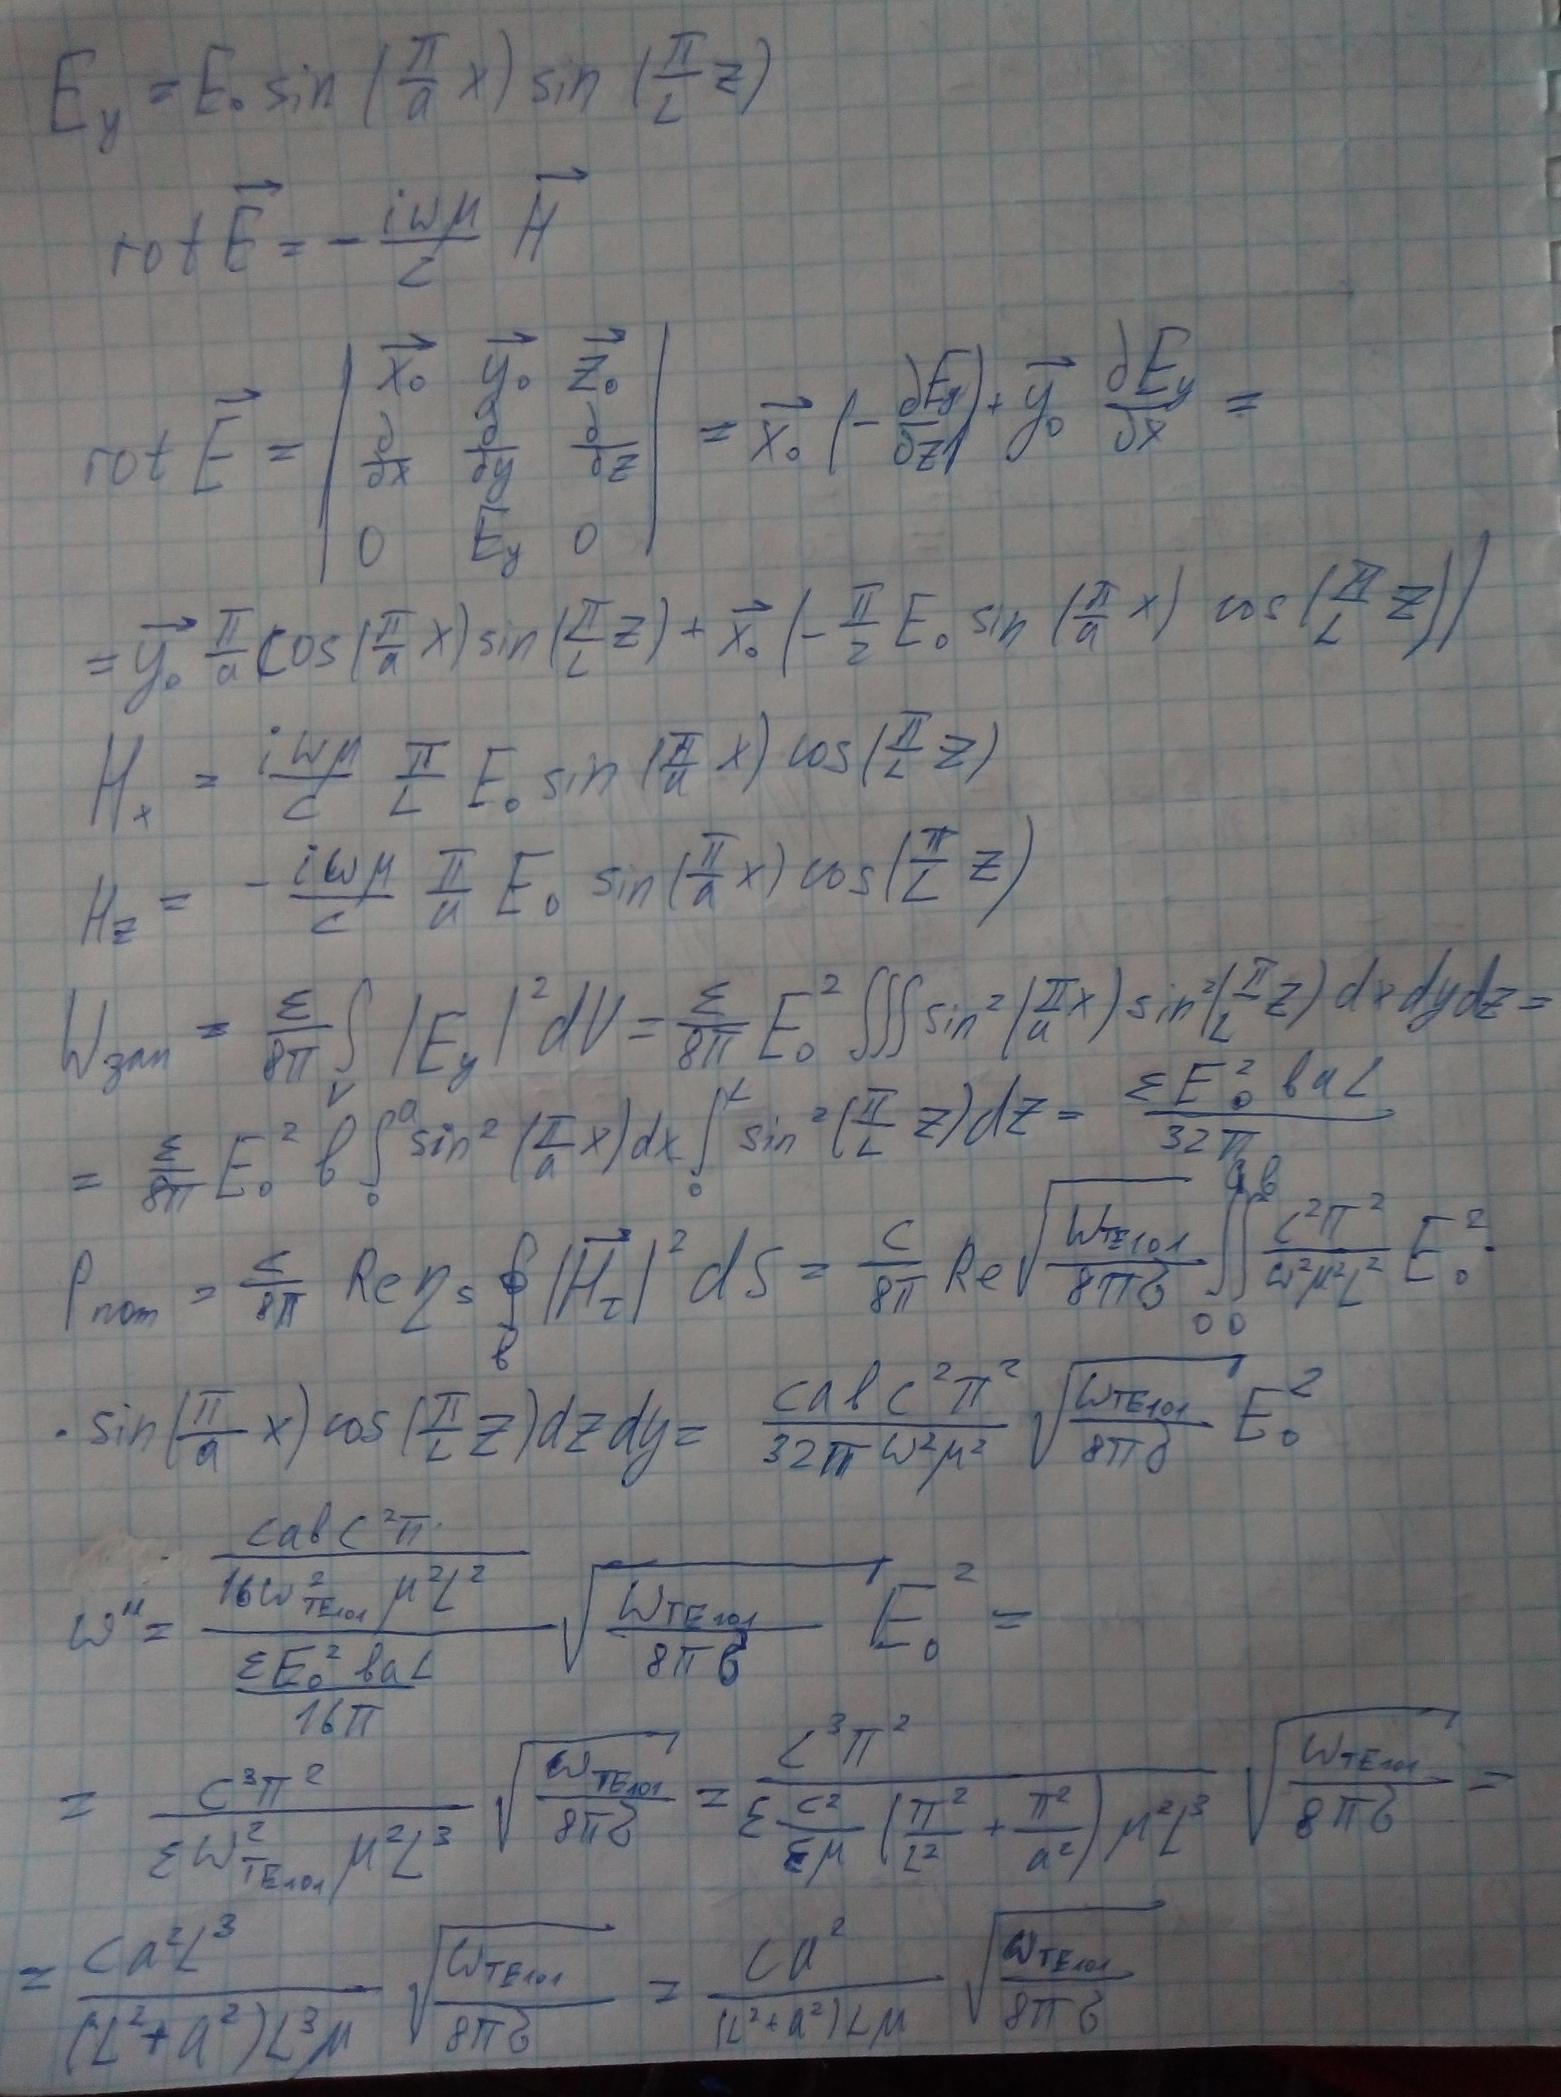 E_y = E_0 sin(π/a x) sin(π/L z)
rot E⃗ = - iωμ/c H⃗
rot E⃗ = | x⃗_0 y⃗_0 z⃗_0 ; ∂/∂x ∂/∂y ∂/∂z ; 0 E_y 0 | = x⃗_0 (- ∂E_y/∂z) + y⃗_0 ∂E_y/∂x =
= y⃗_0 π/a cos(π/a x) sin(π/L z) + x⃗_0 (- π/2 E_0 sin(π/a x) cos(π/L z))
H_x = iωμ/c π/L E_0 sin(π/a x) cos(π/L z)
H_z = - iωμ/c π/a E_0 sin(π/a x) cos(π/L z)
W_зап = ε/8π ∫_V |E_y|² dV = ε/8π E_0² ∭ sin²(π/a x) sin²(π/L z) dx dy dz =
= ε/8π E_0² b ∫_0^a sin²(π/a x) dx ∫_0^L sin²(π/L z) dz = εE_0² baL/32π
P_пот = c/8π Re η_s ∮_b |H⃗_τ|² dS = c/8π Re √(ω_TE101/8πσ) ∫_0∫_0^ab c²π²/ω²μ²L² E_0² ·
· sin(π/a x) cos(π/L z) dz dy = cabc²π²/32πω²μ² √(ω_TE101/8πσ) E_0²
ω" = (cabc²π/16ω²_TE101 μ²L²)/(εE_0² baL/16π) √(ω_TE101/8πσ) E_0² =
= c³π²/εω²_TE101 μ²L³ √(ω_TE101/8πσ) = c³π²/(ε c²/εμ (π²/L² + π²/a²) μ²L³) √(ω_TE101/8πσ) =
= ca²L³/(L²+a²)L³μ √(ω_TE101/8πσ) = ca²/(L²+a²)Lμ √(ω_TE101/8πσ)